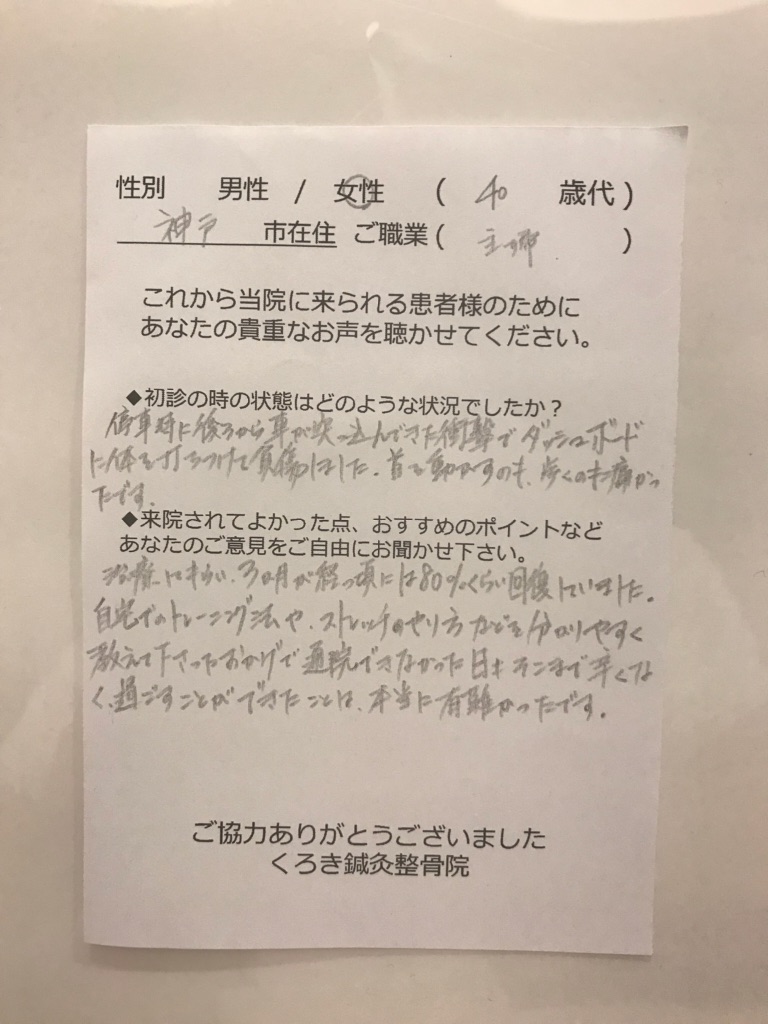 性別 男性 / 女性 ( 40 歳代 )
神戸 市在住 ご職業 ( 主婦 )
これから当院に来られる患者様のために
あなたの貴重なお声を聴かせてください。
◆初診の時の状態はどのような状況でしたか？
停車時に後ろから車が突っ込んできた衝撃でダッシュボード
に体を打ちつけて負傷しました。首を動かすのも、歩くのも痛かっ
たです。
◆来院されてよかった点、おすすめのポイントなど
あなたのご意見をご自由にお聞かせ下さい。
治療して3ヵ月が経つ頃には80%くらい回復していました。
自宅でのトレーニング法や、ストレッチのやり方などを分かりやすく
教えて下さったおかげで通院できなかった日もそこまで辛くな
く、過ごすことができたことは、本当に有難かったです。
ご協力ありがとうございました
くろき鍼灸整骨院